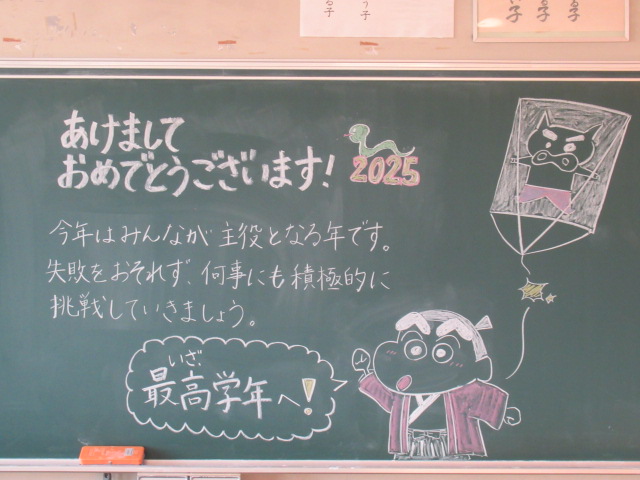 あけまして
おめでとうございます!
2025
今年はみんなが主役となる年です。
失敗をおそれず、何事にも積極的に
挑戦していきましょう。
いざ
最高学年へ!